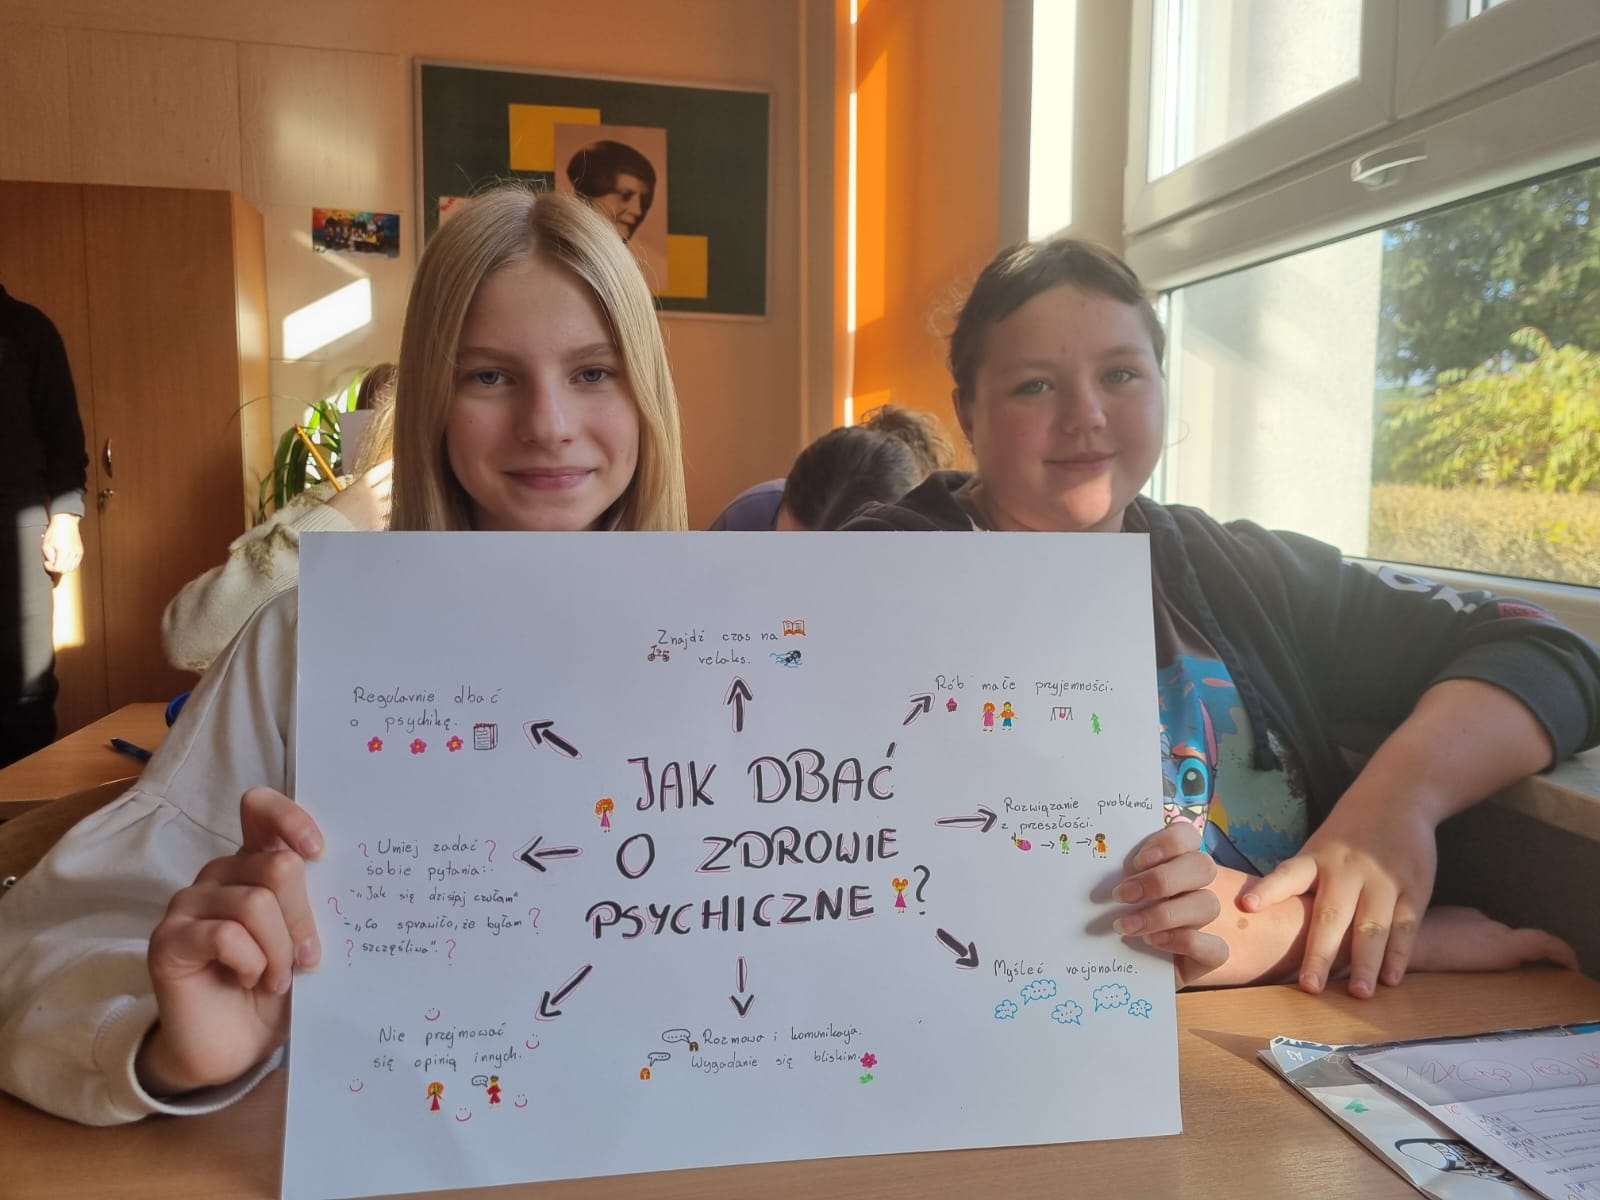 Znajdź czas na
relaks.
Regularnie dbać
o psychikę.
Rób małe przyjemności.
JAK DBAĆ
O ZDROWIE
PSYCHICZNE?
Rozwiązanie problemów
z przeszłości.
? Umiej zadać ?
sobie pytania:
? -"Jak się dzisiaj czułam"
-"Co sprawiło, że byłam ?
? szczęśliwa". ?
Myśleć racjonalnie.
Nie przejmować
się opinią innych.
Rozmowa i komunikacja.
Wygadanie się bliskim.